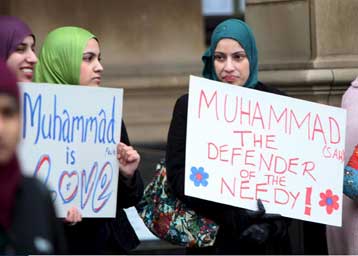 Muhammad
is
LOVE
MUHAMMAD
(SAW)
THE
DEFENDER
OF THE
NEEDY!